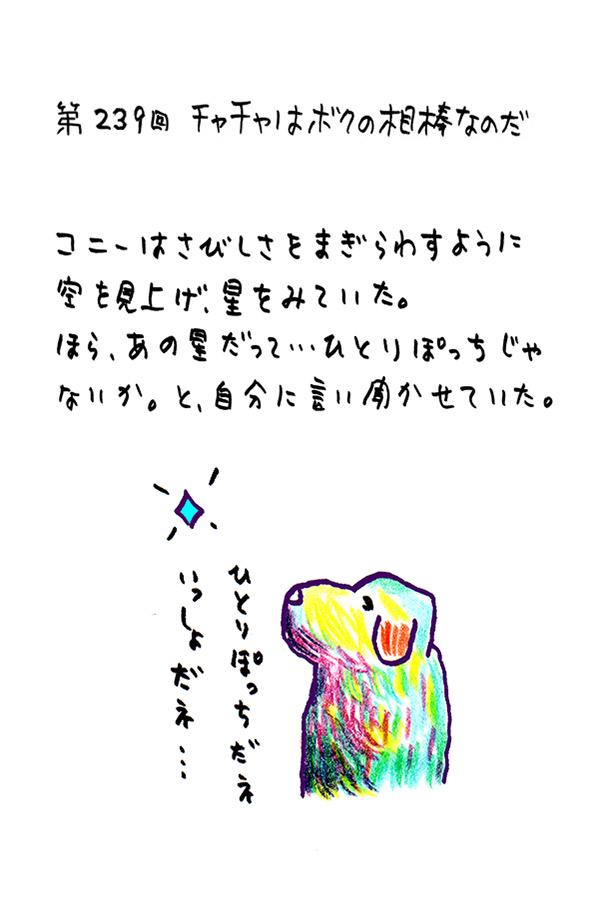 第239回 チャチャはボクの相棒なのだ
コニーはさびしさをまぎらわすように
空を見上げ、星をみていた。
ほら、あの星だって…ひとりぽっちじゃ
ないか。と、自分に言い聞かせていた。
ひとりぽっちだネ
いっしょだネ…